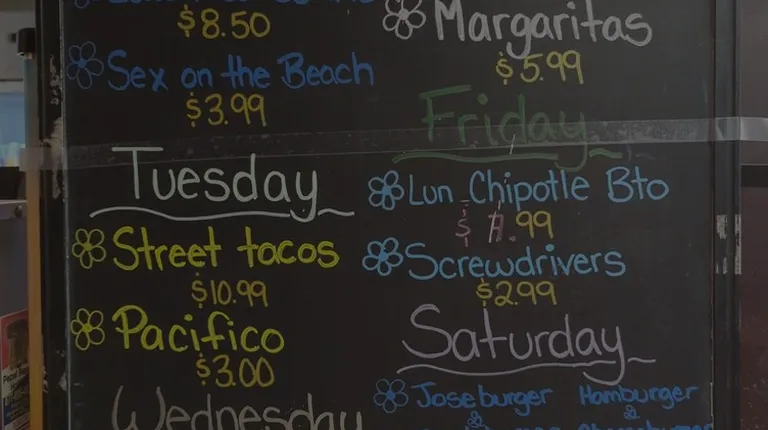 $8.50
Sex on the Beach
$3.99
Tuesday
Street tacos
$10.99
Pacifico
$3.00
Wednesday
Margaritas
$5.99
Friday
Lun Chipotle Bto
.99
Screwdrivers
$2.99
Saturday
Joseburger Hamburger
&